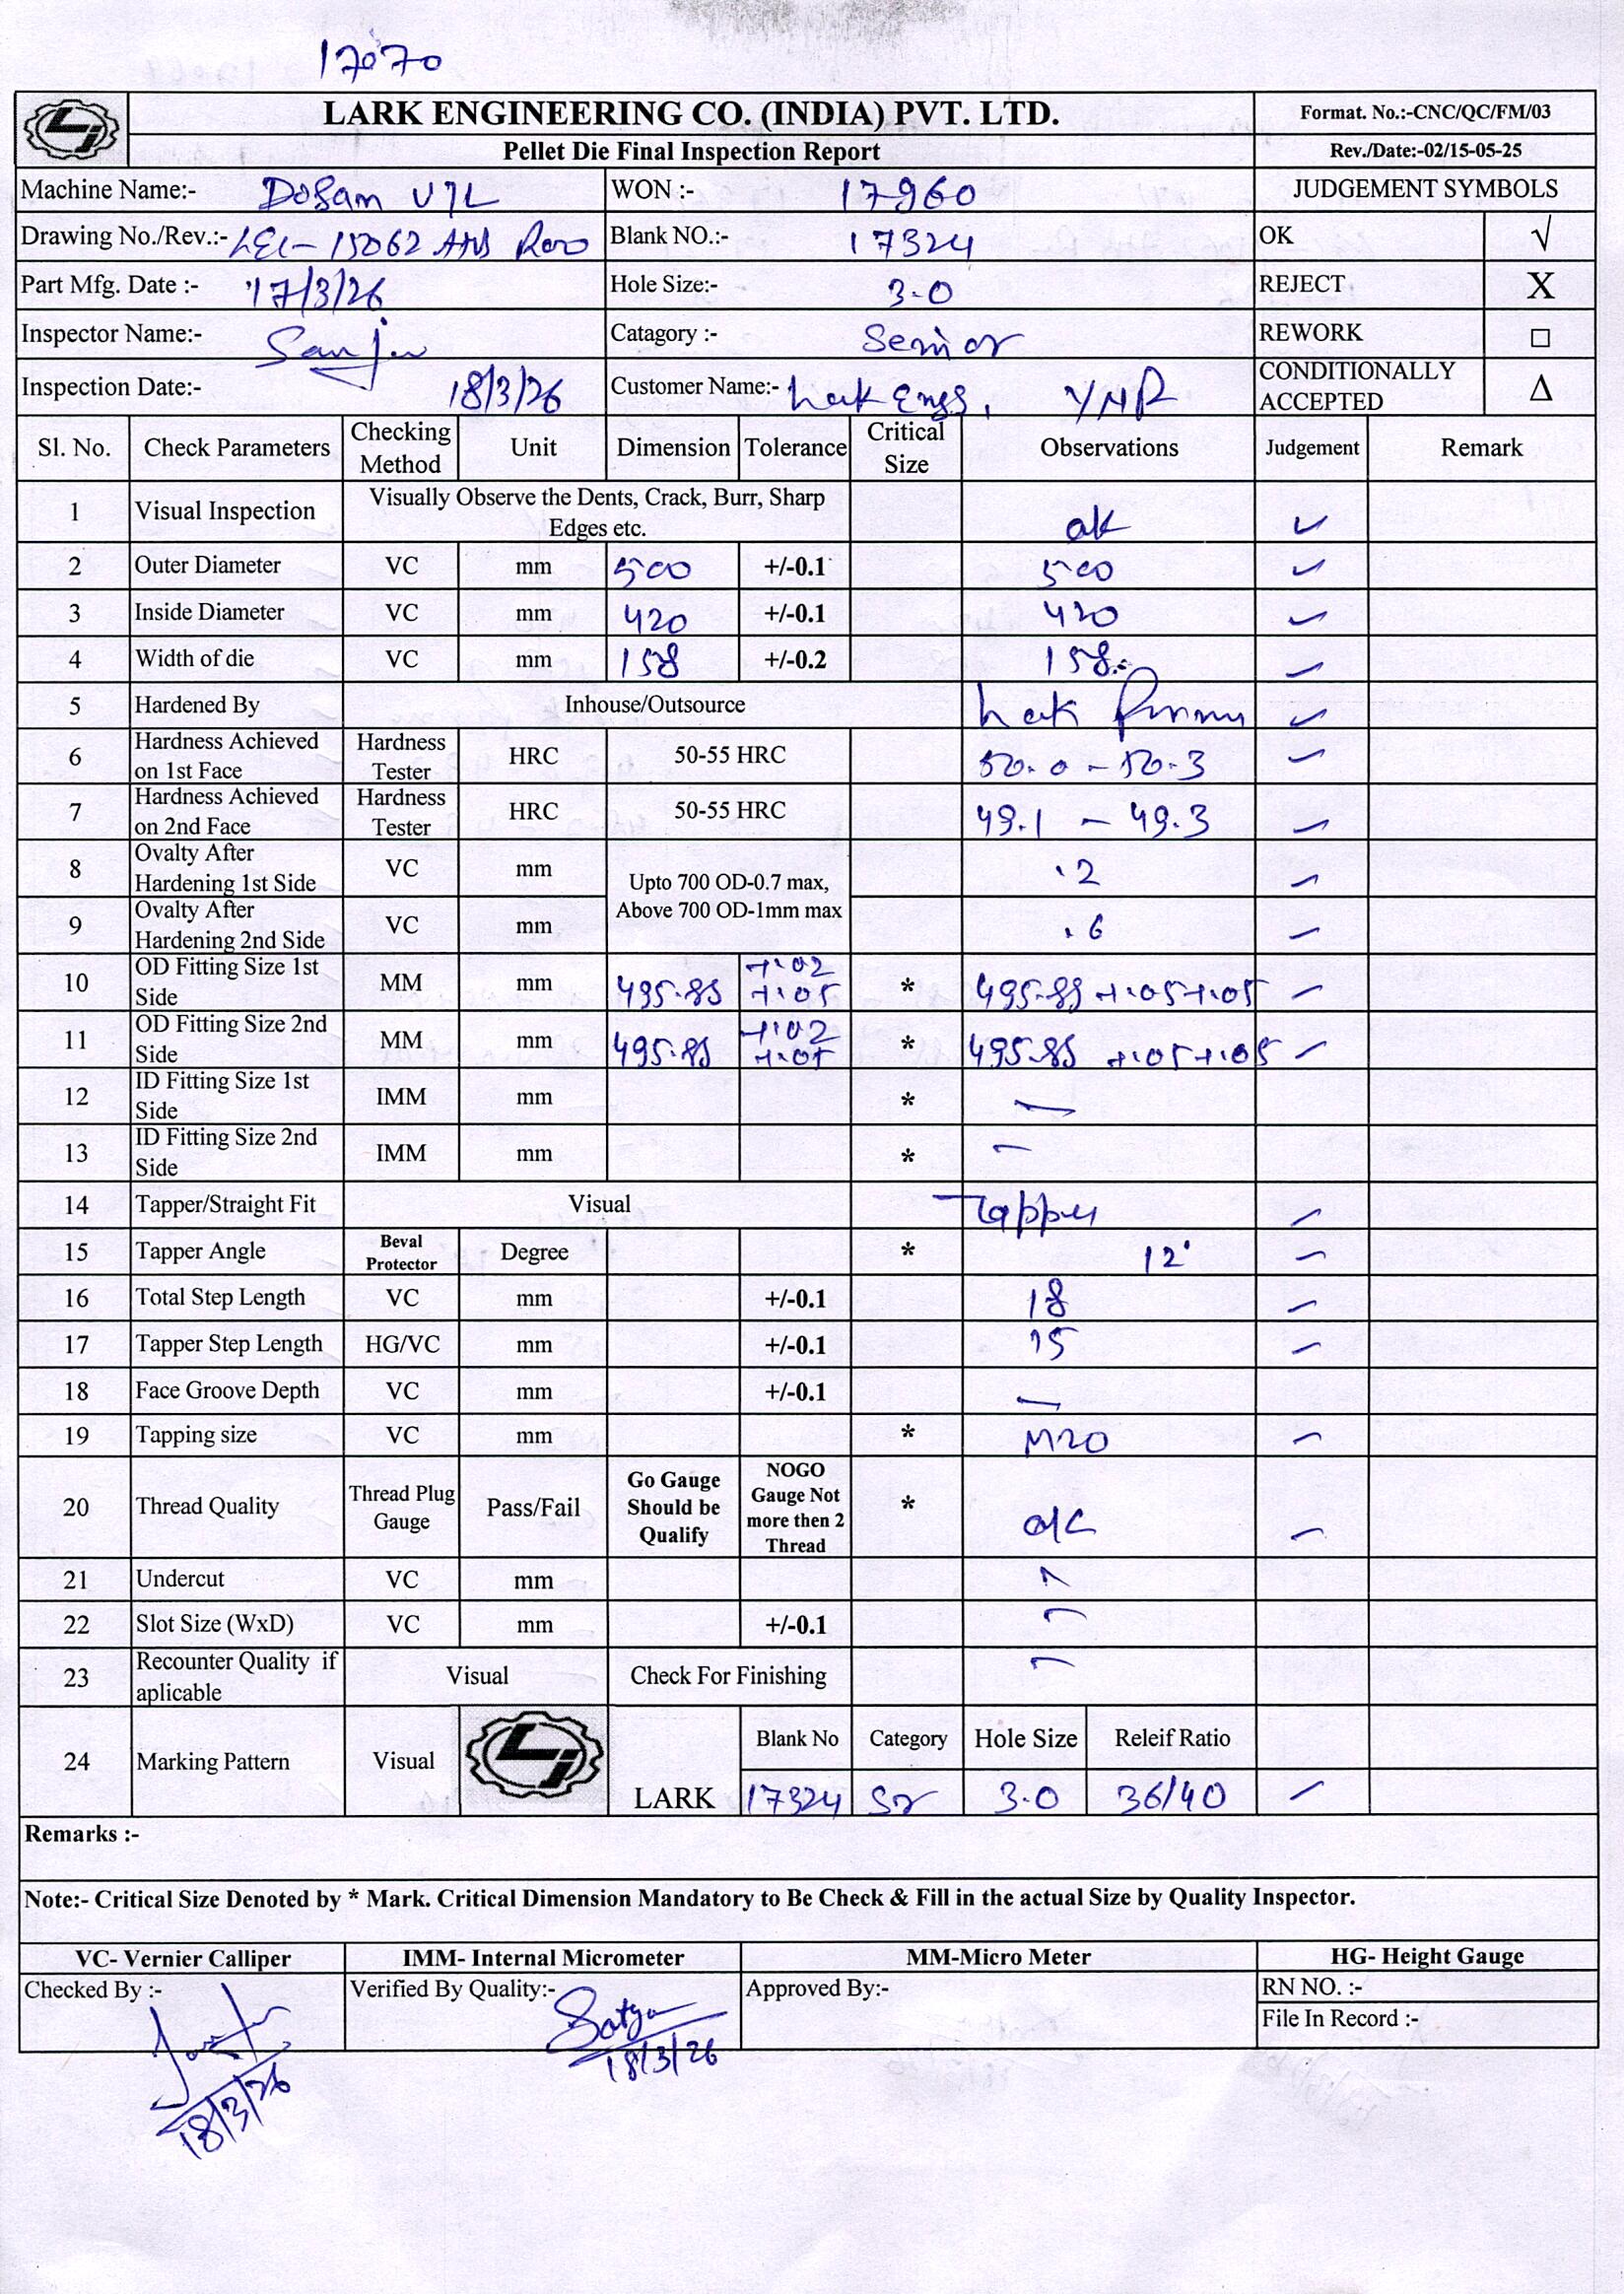 17070
LARK ENGINEERING CO. (INDIA) PVT. LTD. Format. No.:-CNC/QC/FM/03
Pellet Die Final Inspection Report Rev./Date:-02/15-05-25
Machine Name:- WON :- 17960 JUDGEMENT SYMBOLS
Drawing No./Rev.:- Blank NO.:- 17324 OK √
Part Mfg. Date :- 17/3/26 Hole Size:- 3.0 REJECT X
Inspector Name:- Sanju Catagory :- Senior REWORK □
Inspection Date:- 18/3/26 Customer Name:- YNR CONDITIONALLY ACCEPTED Δ
Sl. No. Check Parameters Checking Method Unit Dimension Tolerance Critical Size Observations Judgement Remark
1 Visual Inspection Visually Observe the Dents, Crack, Burr, Sharp Edges etc. ok ✓
2 Outer Diameter VC mm 500 +/-0.1 500 ✓
3 Inside Diameter VC mm 420 +/-0.1 420 ✓
4 Width of die VC mm 158 +/-0.2 158 ✓
5 Hardened By Inhouse/Outsource ✓
6 Hardness Achieved on 1st Face Hardness Tester HRC 50-55 HRC 50.0 - 50.3 ✓
7 Hardness Achieved on 2nd Face Hardness Tester HRC 50-55 HRC 49.1 - 49.3 ✓
8 Ovalty After Hardening 1st Side VC mm Upto 700 OD-0.7 max, Above 700 OD-1mm max .2 ✓
9 Ovalty After Hardening 2nd Side VC mm .6 ✓
10 OD Fitting Size 1st Side MM mm 495.85 +.02 +.05 * 495.85 +.05 +.05 ✓
11 OD Fitting Size 2nd Side MM mm 495.85 +.02 +.05 * 495.85 +.05 +.05 ✓
12 ID Fitting Size 1st Side IMM mm * —
13 ID Fitting Size 2nd Side IMM mm * —
14 Tapper/Straight Fit Visual Tapper ✓
15 Tapper Angle Beval Protector Degree * 12° ✓
16 Total Step Length VC mm +/-0.1 18 ✓
17 Tapper Step Length HG/VC mm +/-0.1 15 ✓
18 Face Groove Depth VC mm +/-0.1 —
19 Tapping size VC mm * M20 ✓
20 Thread Quality Thread Plug Gauge Pass/Fail Go Gauge Should be Qualify NOGO Gauge Not more then 2 Thread * O/C ✓
21 Undercut VC mm —
22 Slot Size (WxD) VC mm +/-0.1 —
23 Recounter Quality if aplicable Visual Check For Finishing —
24 Marking Pattern Visual LARK Blank No Category Hole Size Releif Ratio
17324 Sr 3.0 36/40 ✓
Remarks :-
Note:- Critical Size Denoted by * Mark. Critical Dimension Mandatory to Be Check & Fill in the actual Size by Quality Inspector.
VC- Vernier Calliper IMM- Internal Micrometer MM-Micro Meter HG- Height Gauge
Checked By :- Verified By Quality:- Satya Approved By:- RN NO. :-
File In Record :-
18/3/26 18/3/26